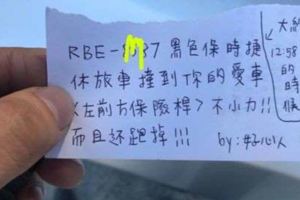 RBE-
37 黑色保時捷
休旅車撞到你的愛車
<左前方保險桿> 不小力!!
而且还跑掉!!! by:好心人
大約
12:58
的
時
候